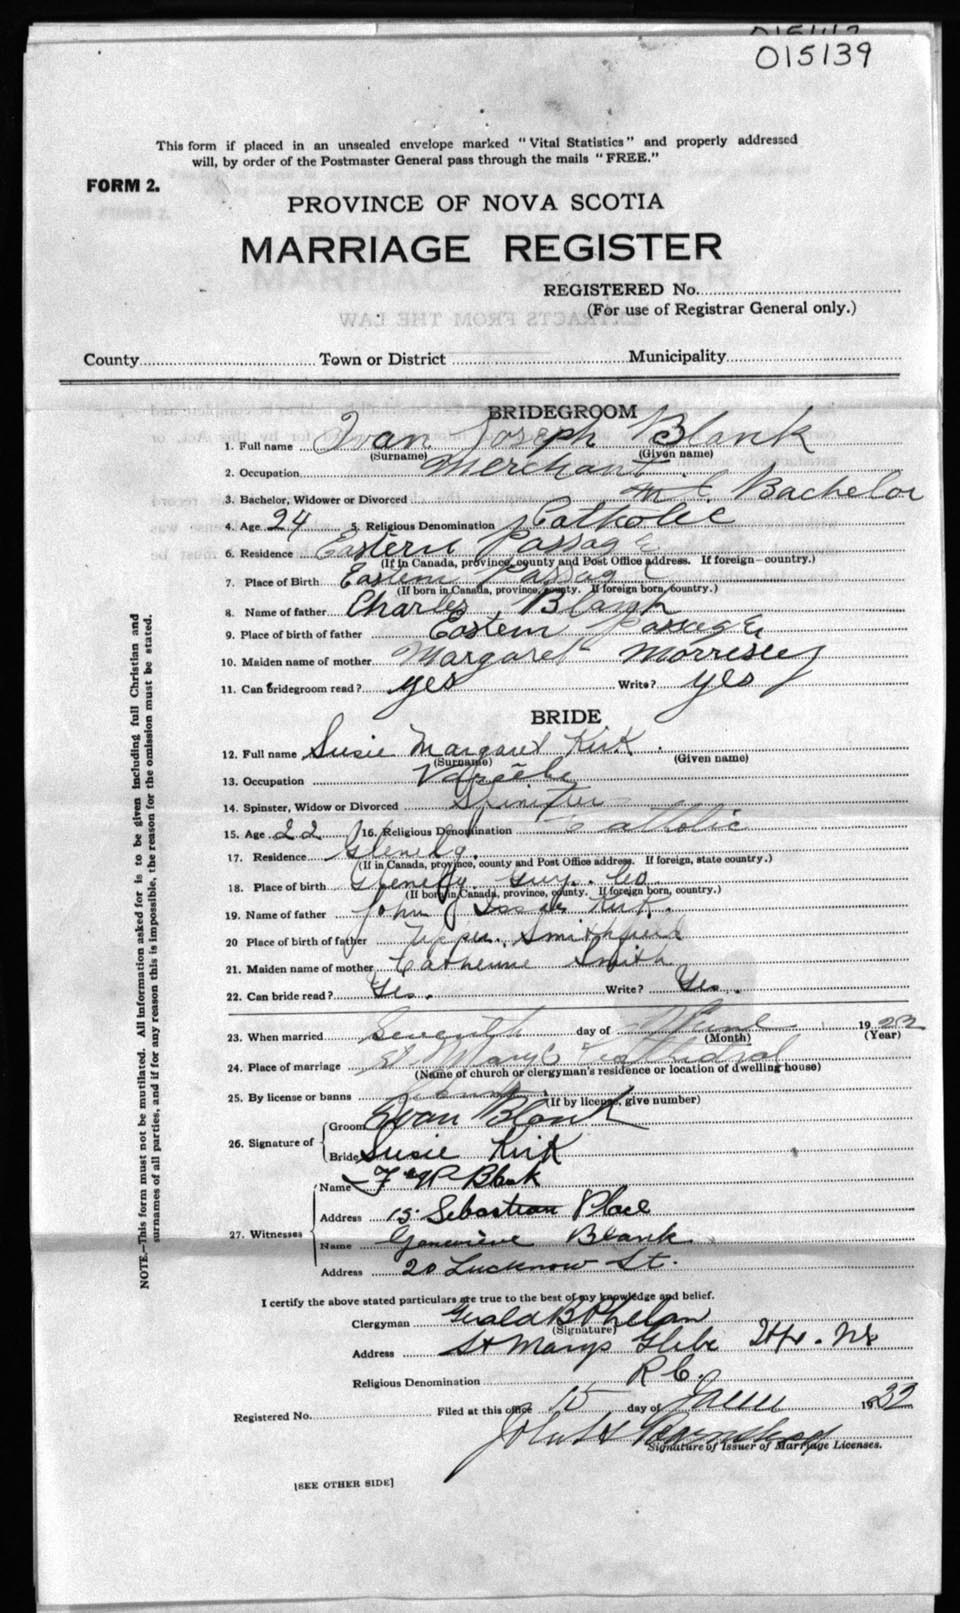 015139
This form if placed in an unsealed envelope marked "Vital Statistics" and properly addressed
will, by order of the Postmaster General pass through the mails "FREE."
FORM 2.
PROVINCE OF NOVA SCOTIA
MARRIAGE REGISTER
REGISTERED No.
(For use of Registrar General only.)
County Town or District Municipality
BRIDEGROOM
1. Full name Ivan Joseph Blank
(Surname) (Given name)
2. Occupation Merchant
3. Bachelor, Widower or Divorced Bachelor
4. Age 24 5. Religious Denomination Catholic
6. Residence Eastern Passage
(If in Canada, province, county and Post Office address. If foreign country.)
7. Place of Birth Eastern Passage
(If born in Canada, province, county. If foreign born, country.)
8. Name of father Charles Blank
9. Place of birth of father Eastern Passage
10. Maiden name of mother Margaret Morrisey
11. Can bridegroom read? yes Write? yes
BRIDE
12. Full name Susie Margaret Kirk
(Surname) (Given name)
13. Occupation
14. Spinster, Widow or Divorced Spinster
15. Age 22 16. Religious Denomination Catholic
17. Residence Glenelg.
(If in Canada, province, county and Post Office address. If foreign, state country.)
18. Place of birth Glenelg Guy. Co
(If born in Canada, province, county. If foreign born, country.)
19. Name of father John Kirk.
20 Place of birth of father Upper Smithfield
21. Maiden name of mother Catherine Smith
22. Can bride read? Yes. Write? Yes.
23. When married Seventh day of June 1922
(Month) (Year)
24. Place of marriage St Mary's Cathedral
(Name of church or clergyman's residence or location of dwelling house)
25. By license or banns
(If by license, give number)
26. Signature of Groom Ivan Blank
Bride Susie Kirk
27. Witnesses Name Blank
Address 15 Sebastian Place
Name Genevieve Blank
Address 20 Lucknow St.
I certify the above stated particulars are true to the best of my knowledge and belief.
Clergyman Gerald B Phelan
(Signature)
Address St Marys Glebe Hfx. NS
Religious Denomination R C.
Registered No. Filed at this office 15 day of June 1922
John H
Signature of Issuer of Marriage Licenses.
[SEE OTHER SIDE]
NOTE.—This form must not be mutilated. All information asked for is to be given including full Christian and
surnames of all parties, and if for any reason this is impossible, the reason for the omission must be stated.